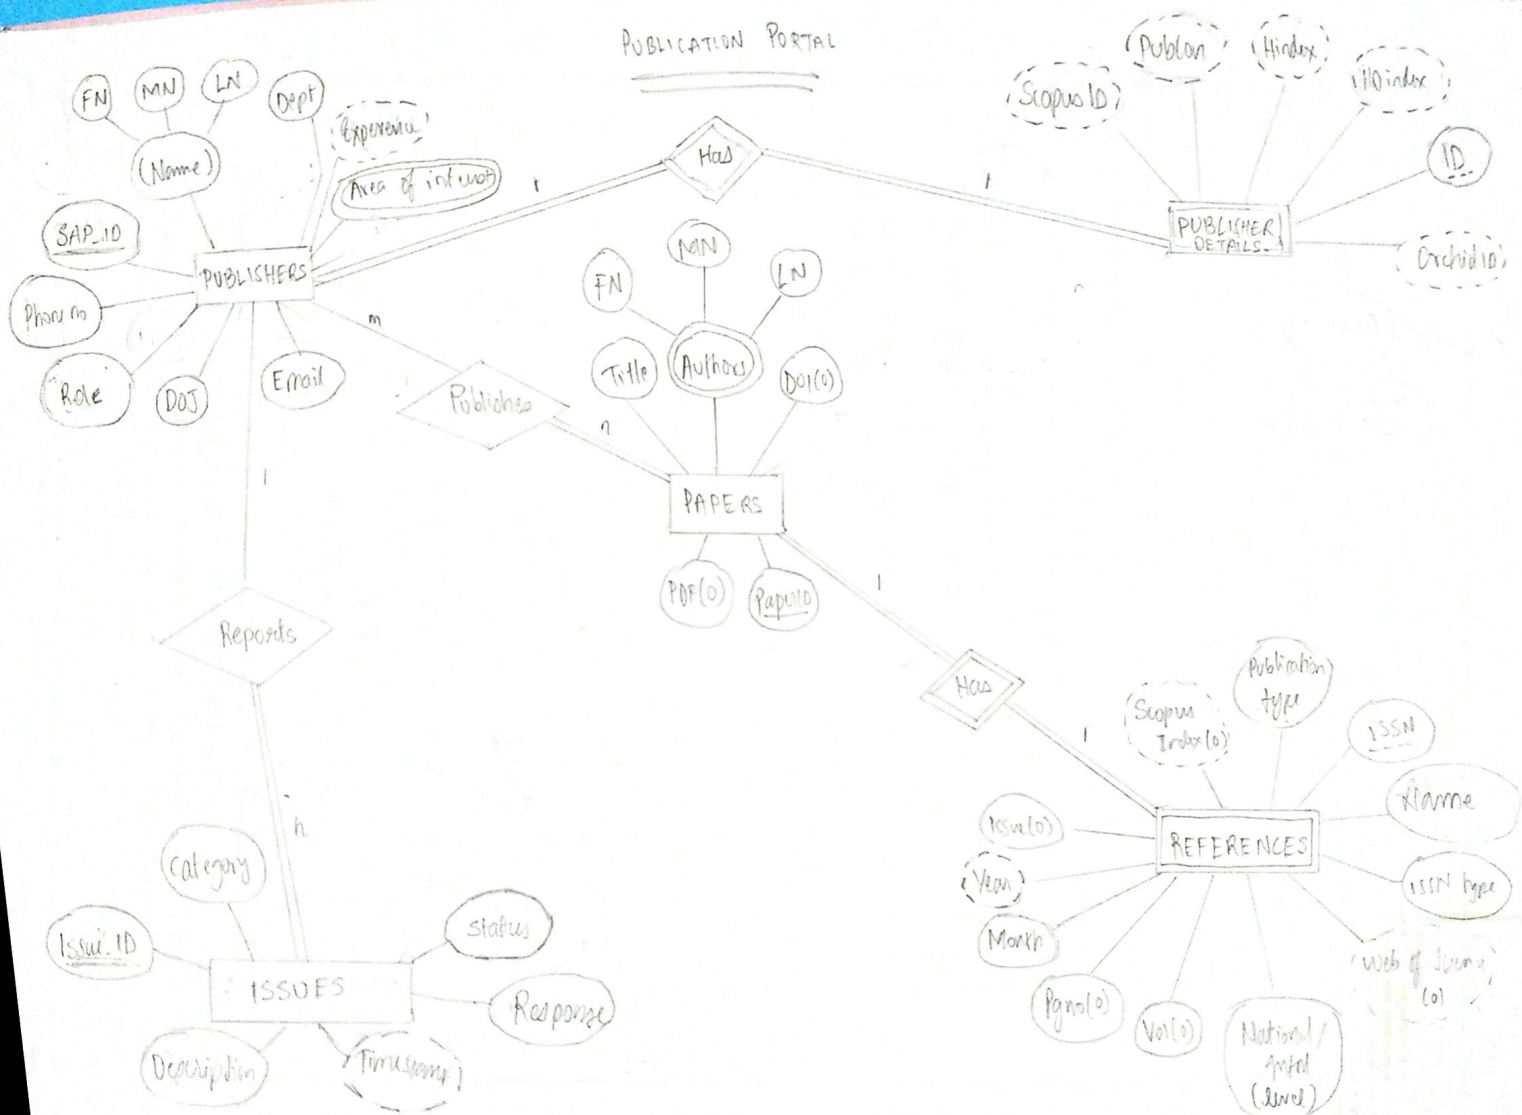 PUBLICATION PORTAL
FN
MN
LN
Dept
Experence
(Name)
Area of interest
SAP_ID
PUBLISHERS
Phone no
Role
DOJ
Email
Has
1
1
Scopus ID
Publon
Hindex
ID
PUBLISHER
DETAILS
Orchid ID
m
Publishes
n
FN
MN
LN
Title
Authors
DOI(O)
PAPERS
PDF(O)
PaperID
1
Has
1
1
Reports
n
Category
Issue ID
ISSUES
Status
Response
Description
Timestamp
Scopus
Index(O)
Publication
type
ISSN
Name
ISSN type
REFERENCES
Issue(O)
Year
Month
Pgno(O)
Vol(O)
National/
Intnl
(level)
Web of
(O)